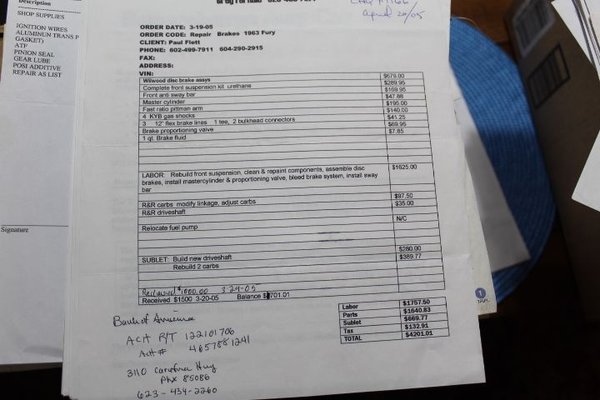 Description
SHOP SUPPLIES
IGNITION WIRES
ALUMINUN TRANS P
GASKET)
ATF
PINION SEAL
GEAR LUBE
POSI ADDITIVE
REPAIR AS LIST
Signature
ORDER DATE: 3-19-05
ORDER CODE: Repair Brakes 1963 Fury
CLIENT: Paul Flett
PHONE: 602-499-7911 604-290-2915
FAX:
ADDRESS:
VIN:
Wilwood disc brake assys $579.00
Complete front suspension kit urethane $289.95
Front anti sway bar $159.95
Master cylinder $47.88
Fast ratio pitman arm $195.00
4 KYB gas shocks $140.00
3 12" flex brake lines 1 tee, 2 bulkhead connectors $41.25
Brake proportioning valve $69.95
1 qt. Brake fluid $7.85
LABOR: Rebuild front suspension, clean & repaint components, assemble disc $1625.00
brakes, install mastercylinder & proportioning valve, bleed brake system, install sway
bar
R&R carbs modify linkage, adjust carbs $97.50
R&R driveshaft $35.00
Relocate fuel pump N/C
SUBLET: Build new driveshaft $280.00
Rebuild 2 carbs $389.77
Received $1000.00 3-24-05
Received $1500 3-20-05 Balance $1701.01
Labor $1757.50
Parts $1640.83
Sublet $669.77
Tax $132.91
TOTAL $4201.01
Bank of America
ACH R/T 122101706
Act# 4657881241
3110 Carefree Hwy
Phx 85086
623-434-2260